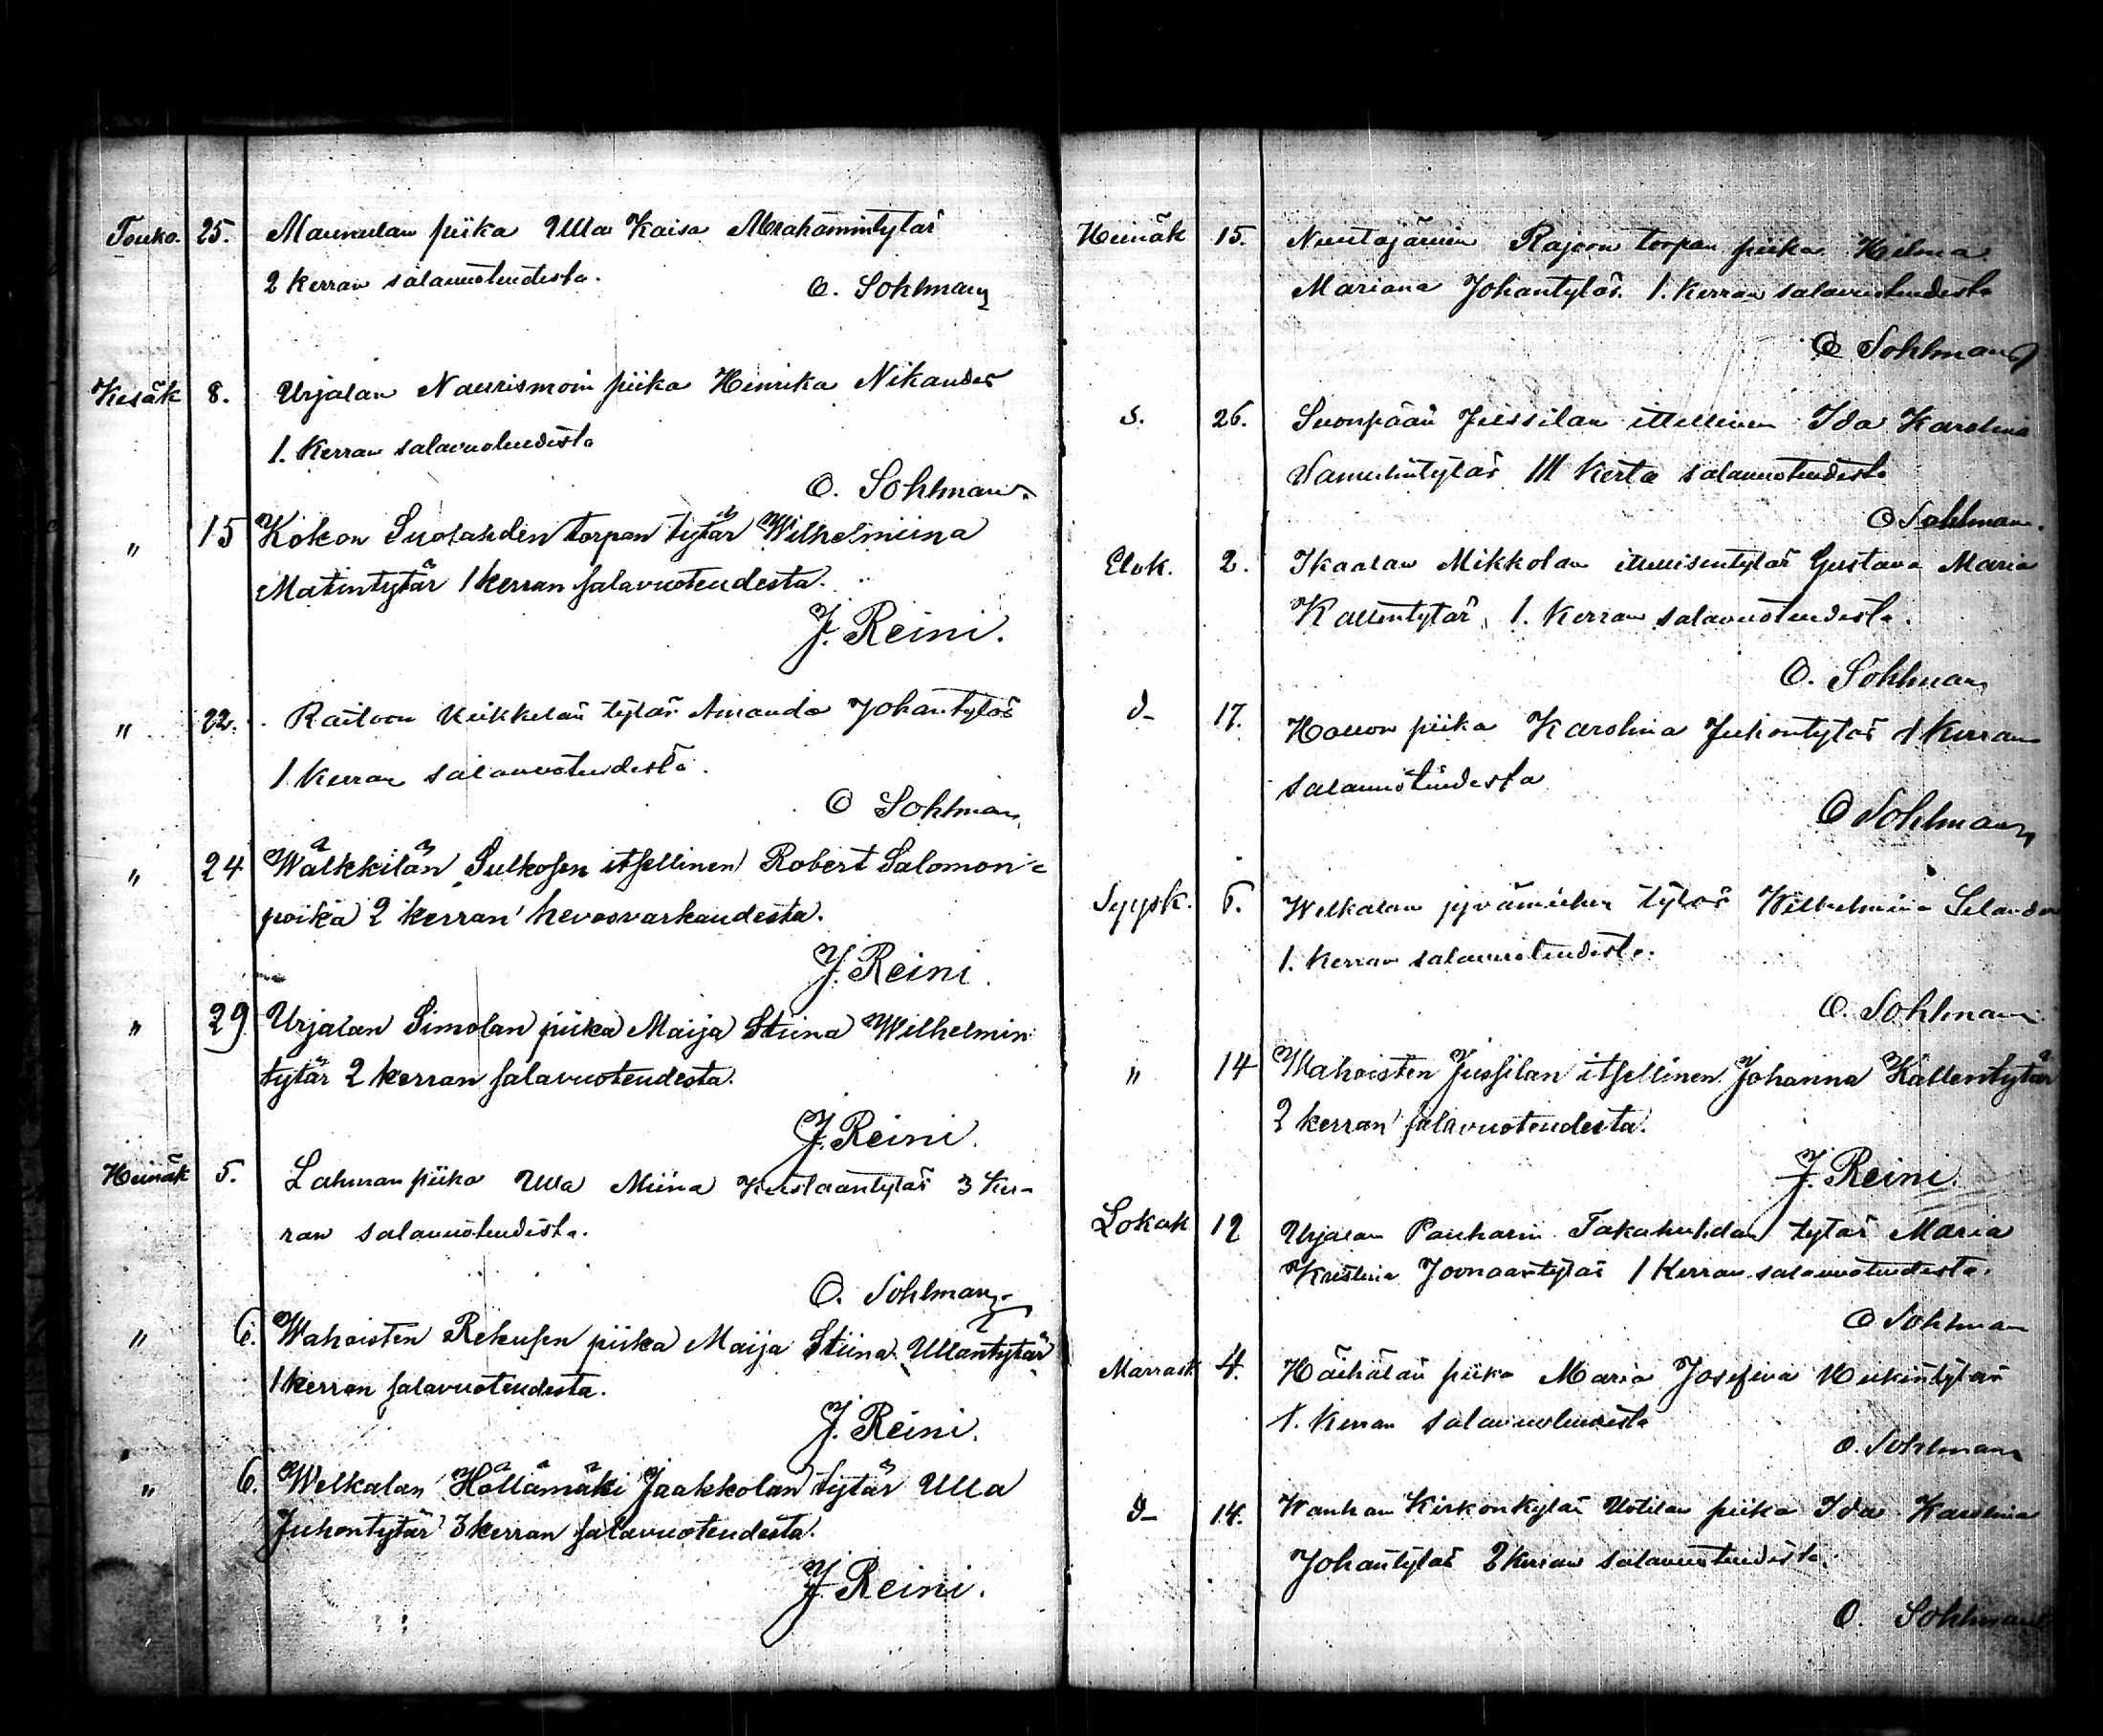 Touko. 25. Maunulan piika Ulla Kaisa Abrahamintytär
2 kerran salavuoteudesta.
O. Sohlman
Kesäk 8. Urjalan Naurismoin piika Henrika Nikander
1. kerran salavuoteudesta
O. Sohlman.
" 15 Kokon Suolahden torpan tytär Wilhelmiina
Matintytär 1 kerran salavuoteudesta.
J. Reini.
" 22. Raitoon tytär Amanda Johantytär
1 kerran salavuoteudesta.
O Sohlman
" 24 Wälkkilän Sulkosen itsellinen Robert Salomon-
poika 2 kerran hevosvarkaudesta.
J. Reini.
" 29 Urjalan Simolan piika Maija Stiina Wilhelmin
tytär 2 kerran salavuoteudesta.
J. Reini.
Heinäk 5. Lahman piika Ulla Miina Kustaantytär 3 ker-
ran salavuoteudesta.
O. Sohlman.
" 6. Wahoisten Rekusen piika Maija Stiina Ullantytär
1 kerran salavuoteudesta.
J. Reini.
" 6. Welkalan Hollämäki Jaakkolan tytär Ulla
Juhontytär 3 kerran salavuoteudesta.
J. Reini.
Heinäk 15. Nuutajärven Rajoon torpan piika Hilma
Mariana Johantytär. 1. kerran salavuoteudesta
O Sohlman
d. 26. Suonpään Jussilan itsellinen Ida Karolina
Samulintytär III kerta salavuoteudesta
O Sohlman.
Elok. 2. Ikaalan Mikkolan itsellisentytär Gustava Maria
Kallentytär, 1. kerran salavuoteudesta.
O. Sohlman
d- 17. Honon piika Karolina Juhontytär 1 kerran
salavuoteudesta
O Sohlman
Syysk. 6. Welkalan tytär Wilhelmina Selander
1. kerran salavuoteudesta.
O. Sohlman.
" 14 Wahoisten Jussilan itsellinen Johanna Kallentytär
2 kerran salavuoteudesta.
J. Reini.
Lokak 12 Urjalan Pauharin Takahuhdan tytär Maria
Kristina Joonaantytär 1 kerran salavuoteudesta.
O Sohlman
Marrask 4. Häihälän piika Maria Josefina Heikintytär
1. kerran salavuoteudesta
O. Sohlman
d- 14. Wanhan Kirkonkylän Uotilan piika Ida Karolina
Johantytär 2 kerran salavuoteudesta.
O. Sohlman